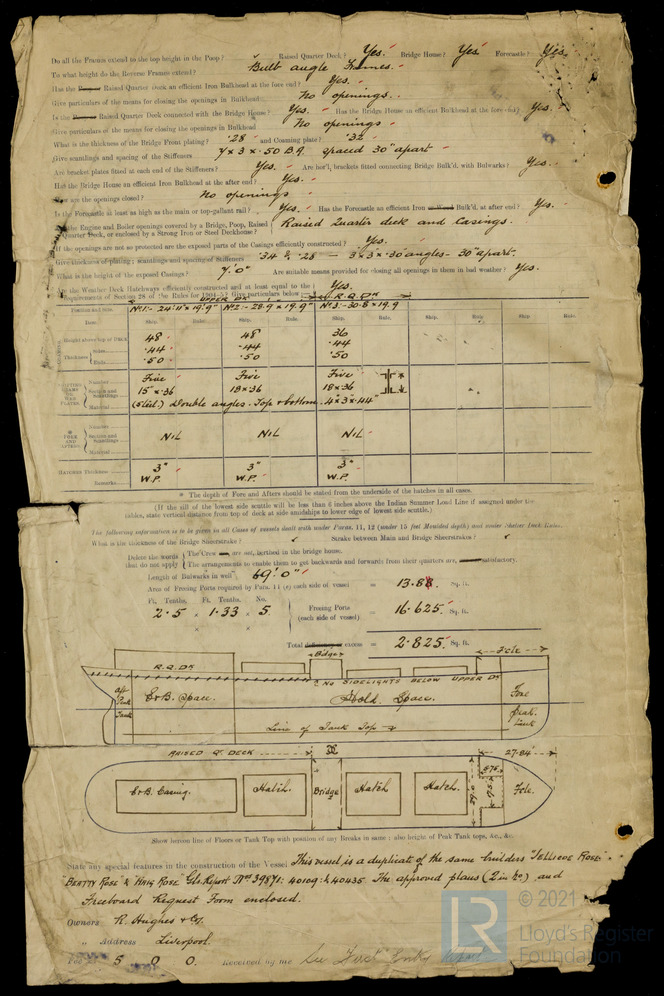 Do all the Frames extend to the top height in the Poop? Raised Quarter Deck? Yes. Bridge House? Yes. Forecastle? Yes.
To what height do the Reverse Frames extend? Bulb angle Frames.
Has the Raised Quarter Deck an efficient Iron Bulkhead at the fore end? Yes.
Give particulars of the means for closing the openings in Bulkhead No openings.
Is the Raised Quarter Deck connected with the Bridge House? Yes. Has the Bridge House an efficient Bulkhead at the fore end? Yes.
Give particulars of the means for closing the openings in Bulkhead No openings
What is the thickness of the Bridge Front plating? .28 and Coaming plate? .32
Give scantlings and spacing of the Stiffeners 7 x 3 x .50 B.A. spaced 30" apart
Are bracket plates fitted at each end of the Stiffeners? Yes. Are hor'l, brackets fitted connecting Bridge Bulk'd. with Bulwarks? Yes.
Has the Bridge House an efficient Iron Bulkhead at the after end? Yes.
How are the openings closed? No openings
Is the Forecastle at least as high as the main or top-gallant rail? Yes. Has the Forecastle an efficient Iron Bulk'd. at after end? Yes.
the Engine and Boiler openings covered by a Bridge, Poop, Raised Quarter Deck, or enclosed by a Strong Iron or Steel Deckhouse? Raised Quarter deck and Casings.
If the openings are not so protected are the exposed parts of the Casings efficiently constructed? Yes.
Give thickness of plating; scantlings and spacing of Stiffeners .34 & .28 — 3 x 3 x .30 angles - 30" apart.
What is the height of the exposed Casings? 7'.0" Are suitable means provided for closing all openings in them in bad weather? Yes.
Are the Weather Deck Hatchways efficiently constructed and at least equal to the Yes.
Requirement of Section 28 of the Rules for Give particulars below
UPPER DK R.Q.DK
Position and size. No1:- 24'11" x 19.9" No2:- 28.9 x 19.9" No3:- 30.8 x 19.9
Item. Ship. Rule. Ship. Rule. Ship. Rule. Ship. Rule. Ship. Rule.
Height above top of DECK 48 48 36
Thickness Sides .44 .44 .44
Ends .50 .50 .50
Number Five Five Five
Sections and Scantlings 15" x .36 18 x 36 18 x 36
Material (steel) Double angles. Top & bottom. 4" x 3" x .44"
Number
FORE AND AFTERS. NIL NIL NIL
Material
HATCHES Thickness 3" 3" 3"
Remarks W.P. W.P. W.P.
* The depth of Fore and Afters should be stated from the underside of the hatches in all cases.
(If the sill of the lowest side scuttle will be less than 6 inches above the Indian Summer Load Line if assigned under the
tables, state vertical distance from top of deck at side amidships to lower edge of lowest side scuttle.)
The following information is to be given in all Cases of vessels dealt with under Paras. 11, 12 (under 15 feet Moulded depth) and under Shelter Deck Rules.
What is the thickness of the Bridge Sheerstrake? Strake between Main and Bridge Sheerstrakes?
Delete the words that do not apply The Crew are, berthed in the bridge house.
The arrangements to enable them to get backwards and forwards from their quarters are, satisfactory.
Length of Bulwarks in well 69'.0"
Area of Freeing Ports required by Para. 11 (s) each side of vessel = 13.8 Sq. ft.
Ft. Tenths. Ft. Tenths. No.
2.5 x 1.33 x 5 Freeing Ports (each side of vessel) = 16.625 Sq. ft.
Total excess = 2.825 Sq. ft.
R.Q.DK Bridge Fcle
NO SIDELIGHTS BELOW UPPER DK
Aft Peak Tank E&B. Space. Hold Space. Fore peak. tank
Line of Tank Top
RAISED QR DECK 27.84'
E&B. Casing. Hatch. Bridge Hatch Hatch. Fcle.
Show hereon line of Floors or Tank Top with position of any Breaks in same: also height of Peak Tank tops, &c., &c.
State any special features in the construction of the Vessel This vessel is a duplicate of the same builders "JELLICOE ROSE"
"BEATTY ROSE" & "HAIG ROSE" Gls. Report Nos 39871: 40109: & 40435 The approved plans (2 in No) and
Freeboard Request Form enclosed.
Owners R. Hughes & Co.
" Address Liverpool.
Fee 5 0 0. Received by me See First Entry
© 2021
LR Lloyd's Register
Foundation